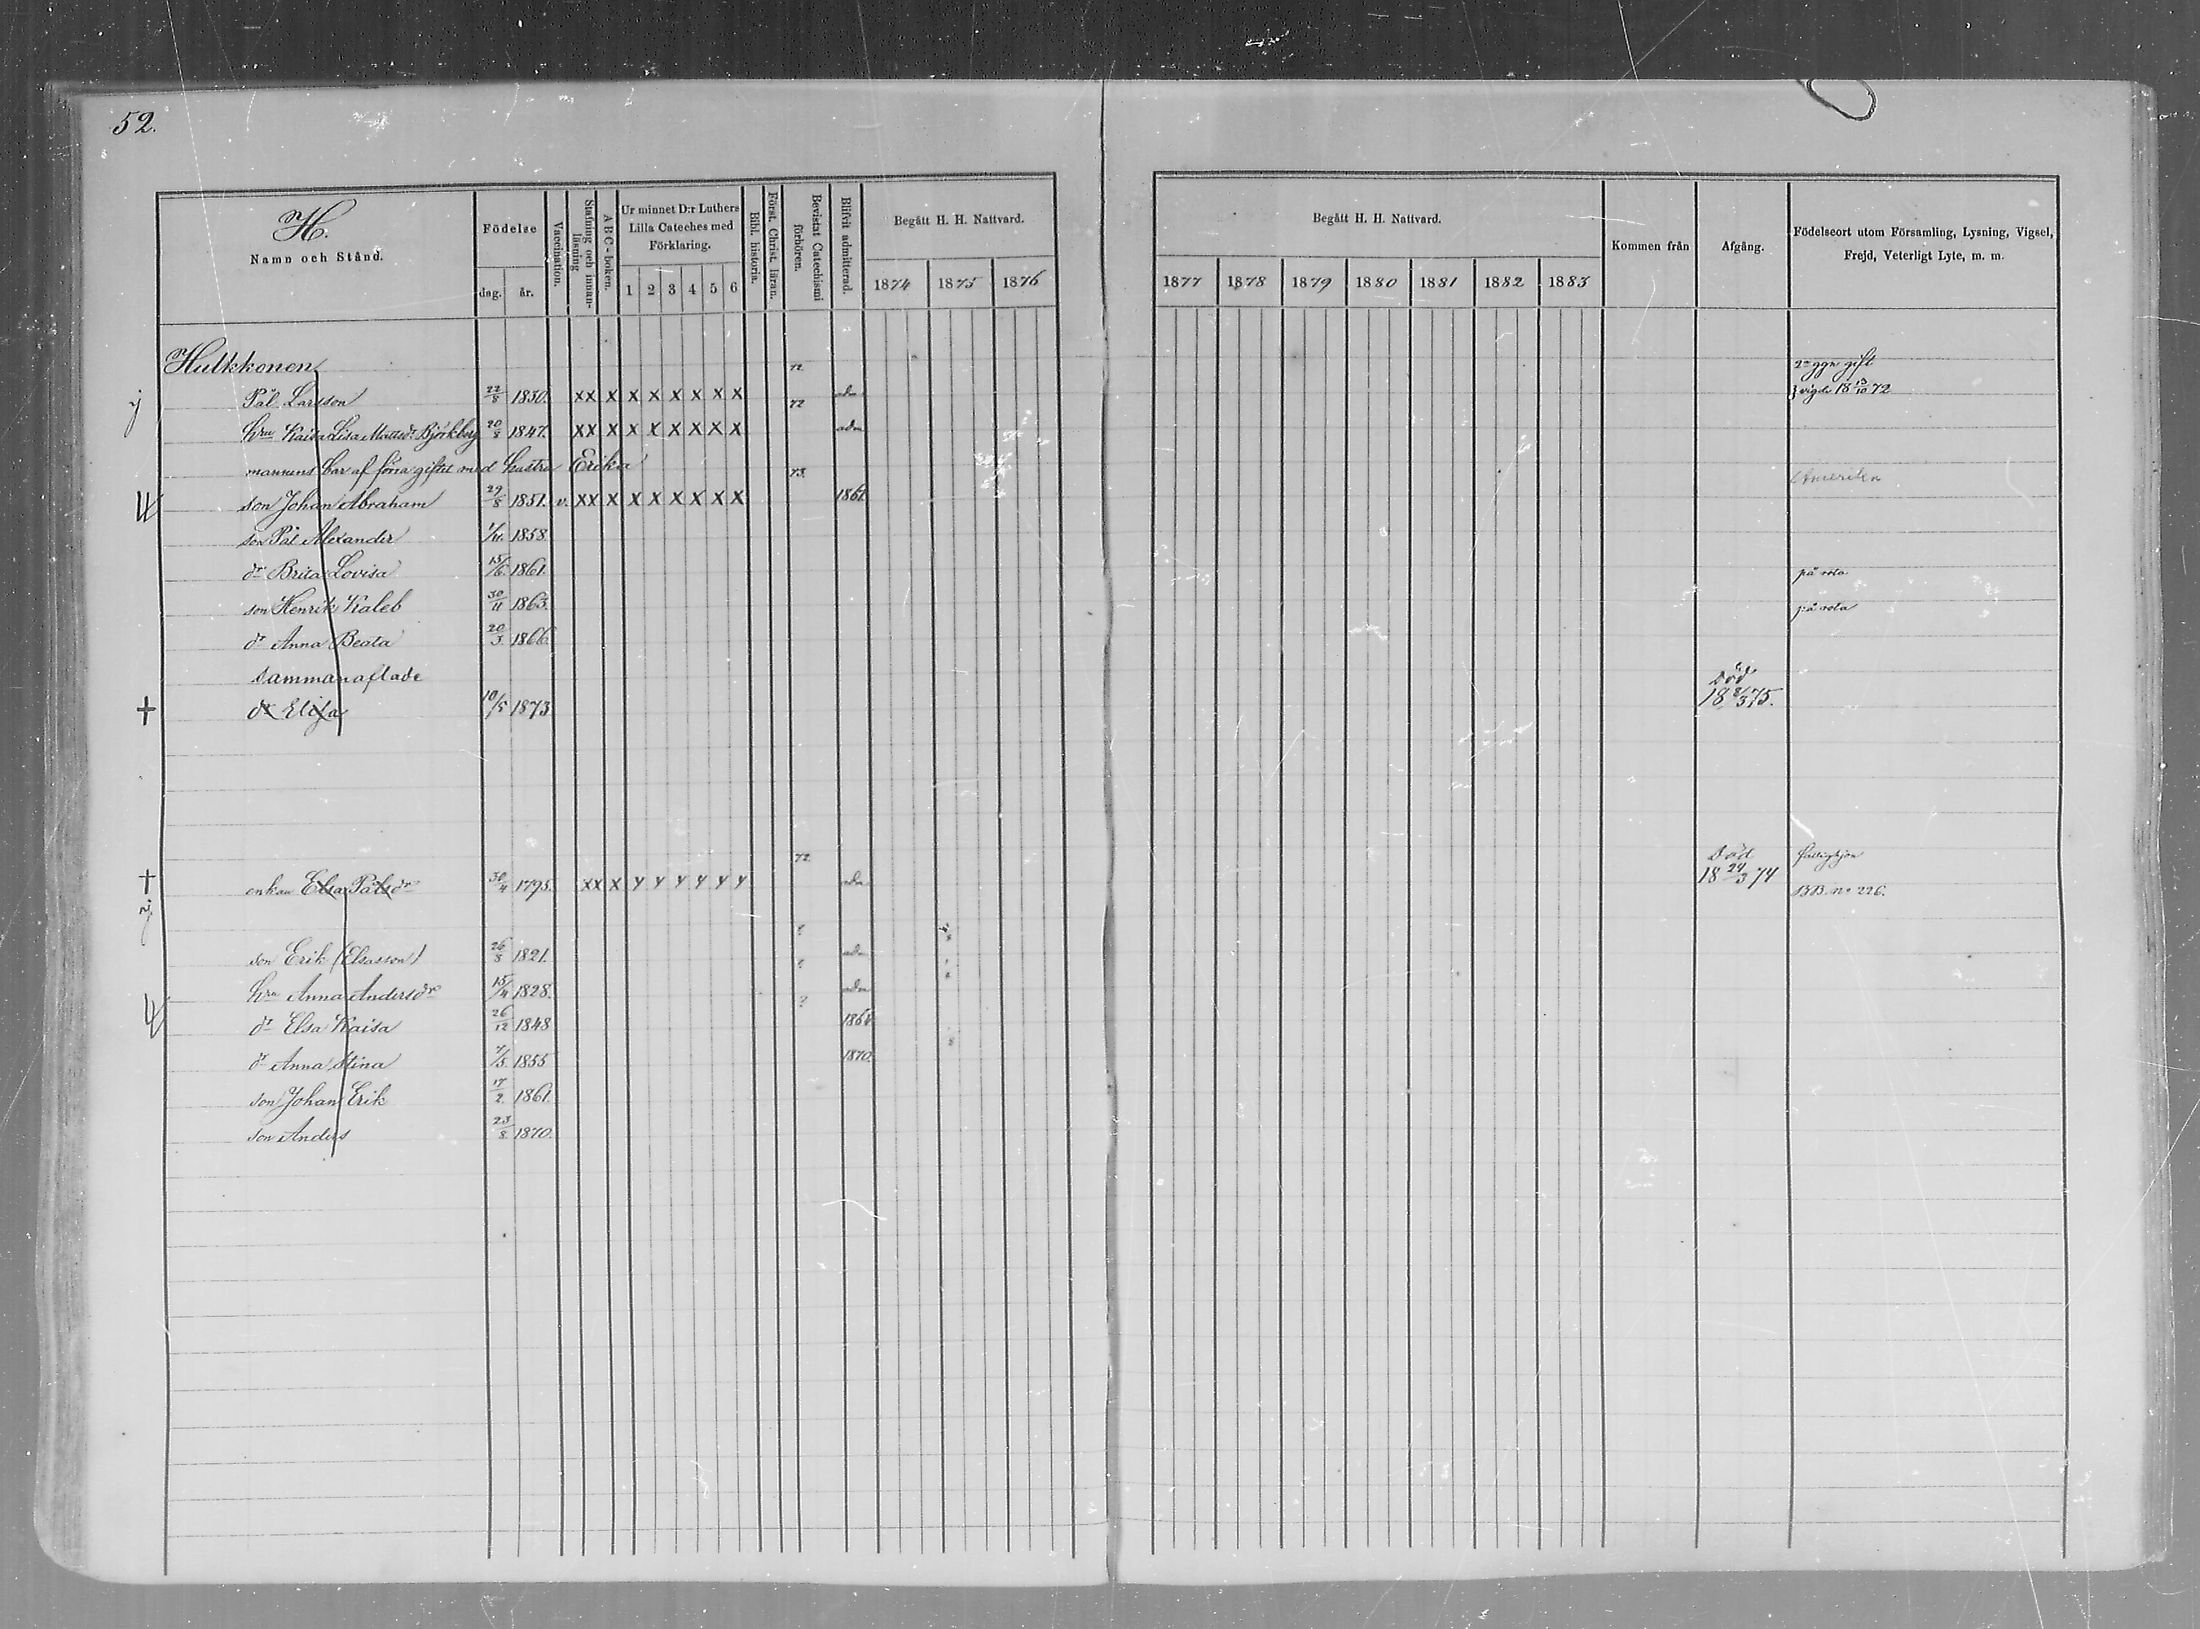 52.
H.
Namn och Stånd.
Födelse
dag. år.
Vaccination.
Stafning och innanläsning
A B C-boken.
Ur minnet D:r Luthers Lilla Cateches med Förklaring.
1 2 3 4 5 6
Bibl. historia.
Först. Christ. läran.
Bevistat Catechismi förhören.
Blifvit admitterad.
Begått H. H. Nattvard.
1874 1875 1876
Begått H. H. Nattvard.
1877 1878 1879 1880 1881 1882 1883
Kommen från
Afgång.
Födelseort utom Församling, Lysning, Vigsel, Frejd, Veterligt Lyte, m. m.
Hulkkonen 72 2 ggr gift
Pål Larsson 22/8 1830. XX X X X X X X X 72 adm } vigde 18 13/10 72
hru Kaisa Lisa Mattsdr Björkborg 20/8 1847. XX X X X X X X X adm
mannens bar af förra giftet med hustru Erika 73. Amerika
son Johan Abraham 29/8 1851. v. XX X X X X X X X 1861
son Pål Alexander 1858.
dr Brita Lovisa 15/6 1861. på rota
son Henrik Kaleb 30/11 1863. på rota
dr Anna Beata 20/3 1866.
Sammanaflade Död
dr Elisa 10/5 1873 18 8/3 75.
72. Död fattighjon
enkan Elsa Pålsdr 30/4 1795. XX X Y Y Y Y Y Y adm 18 24/3 74 BB. no 226.
?
son Erik (Elsasson) 26/8 1821. adm
hru Anna Andersdr 15/4 1828. adm
dr Elsa Kaisa 26/12 1848
dr Anna Stina 1855 1870.
son Johan Erik 17/2 1861.
son Anders 23/8 1870.